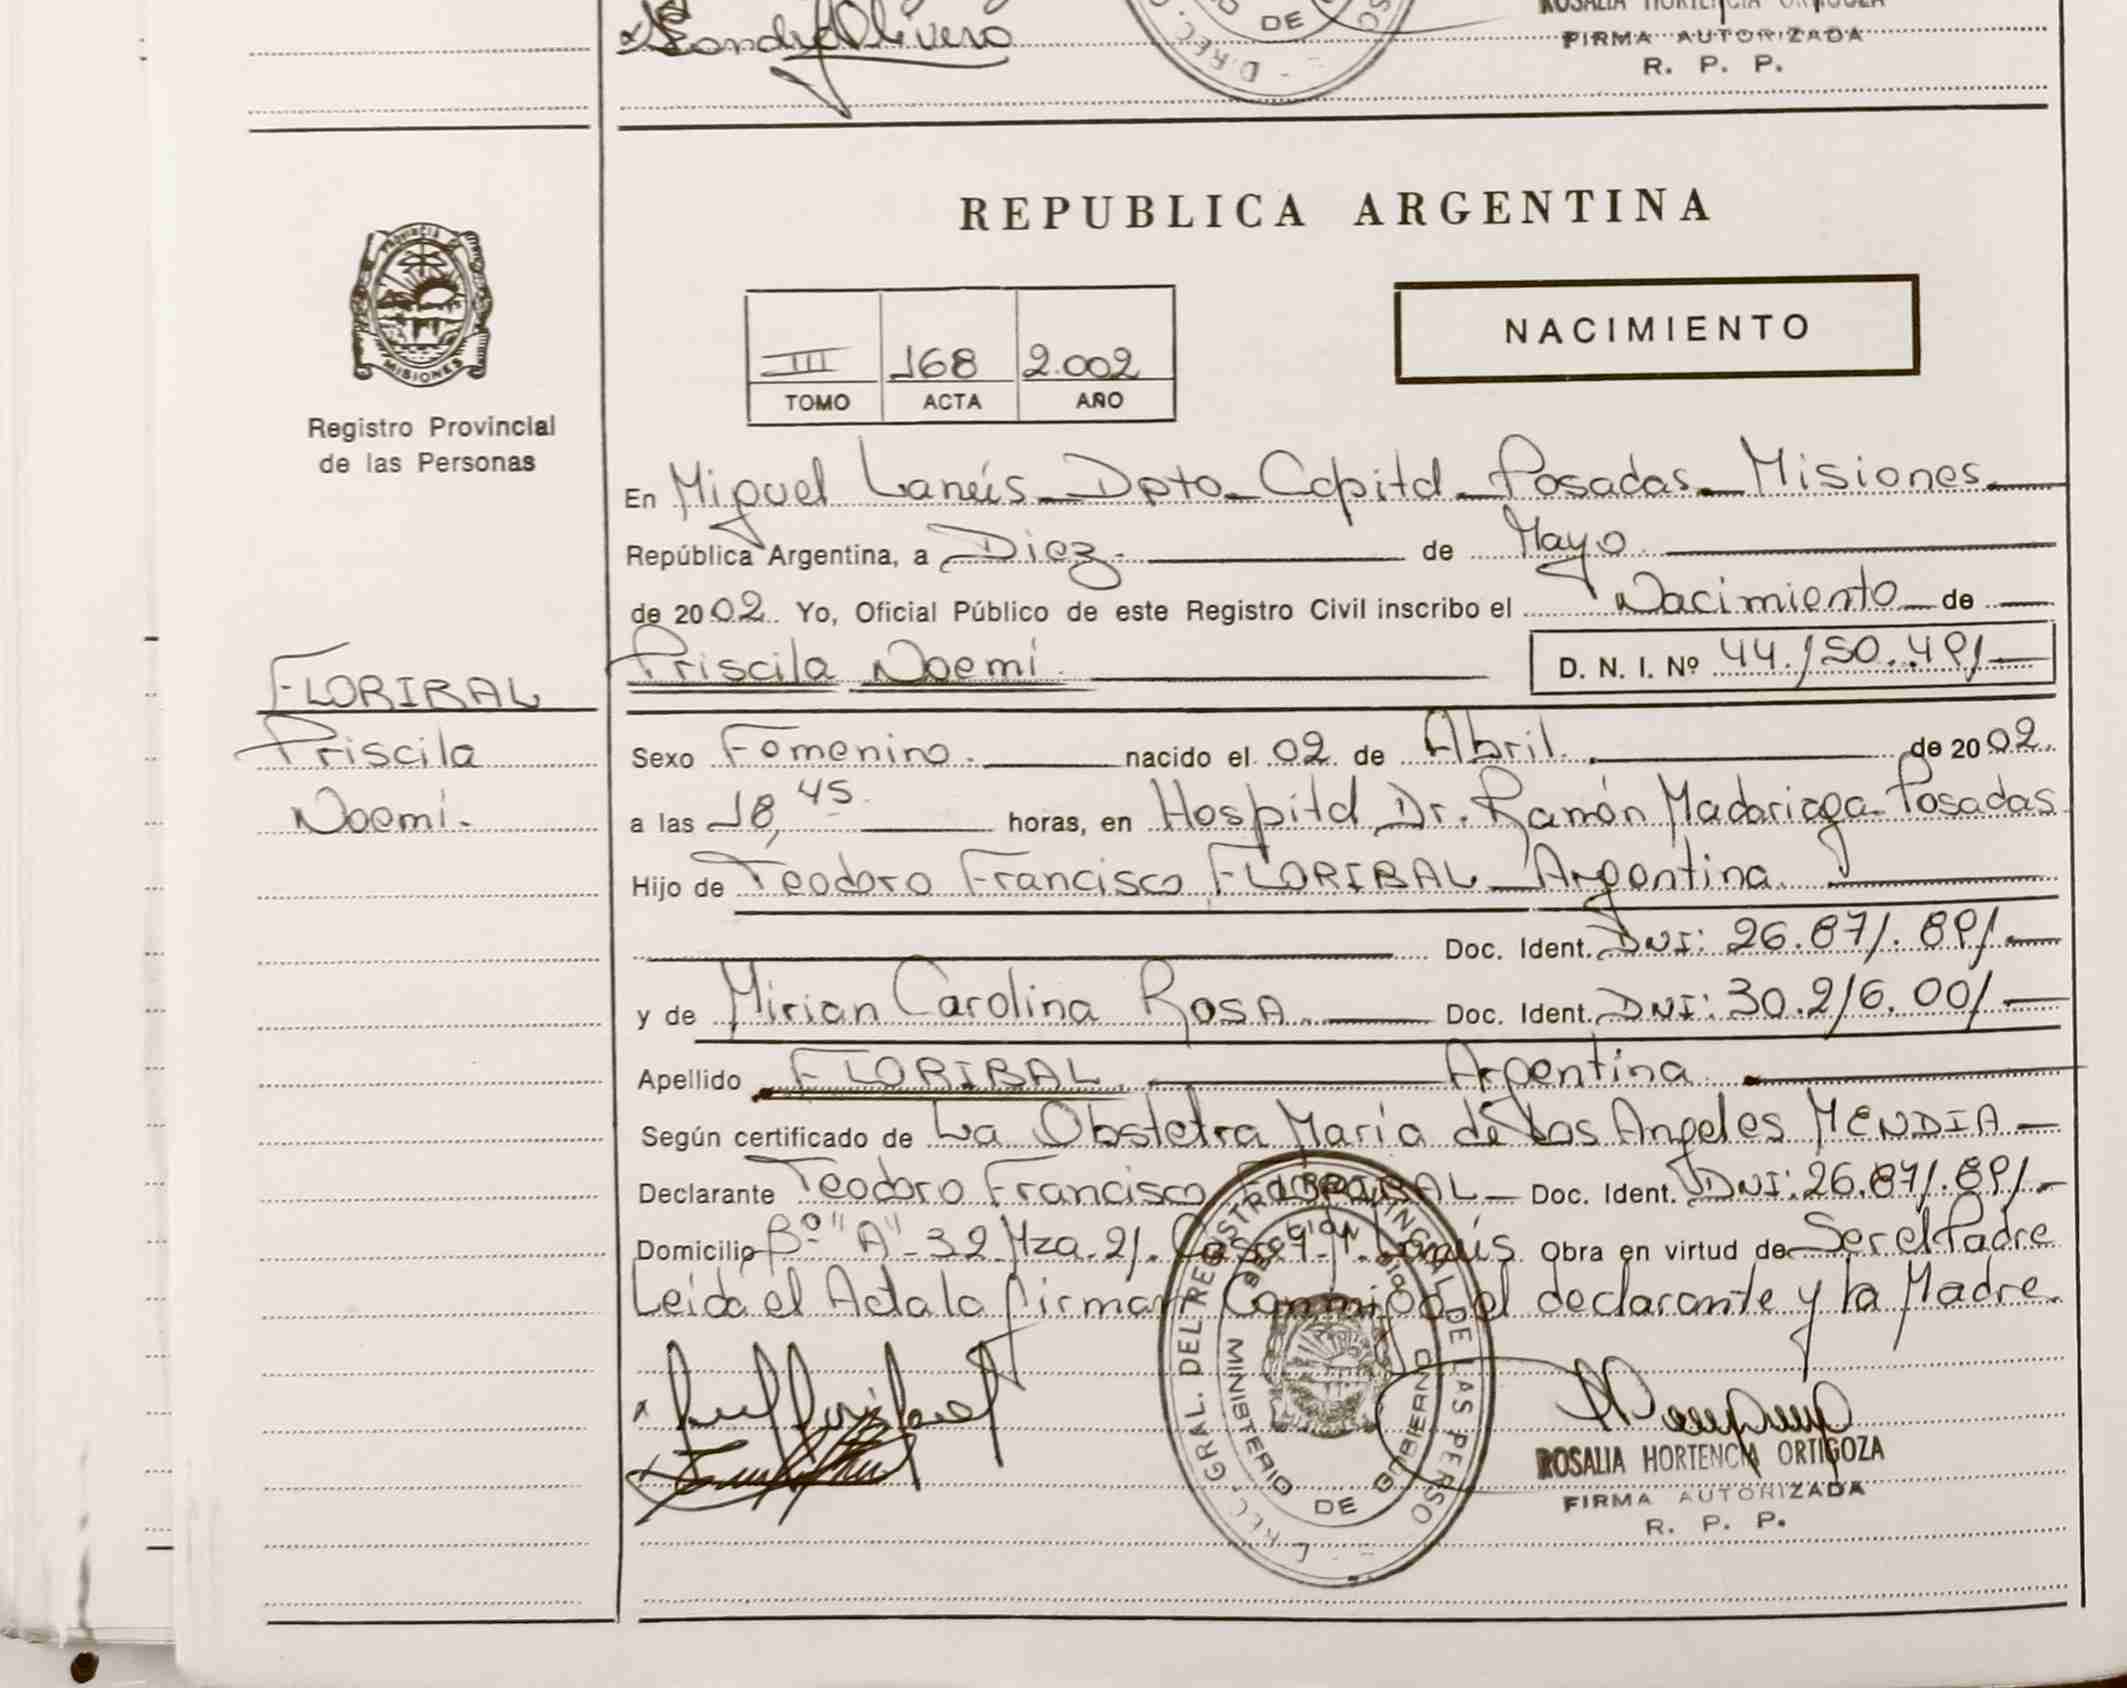 Leandro Olivera
DE
ROSALIA HORTENCIA ORTIGOZA
FIRMA AUTORIZADA
R. P. P.
PROVINCIA DE
MISIONES
Registro Provincial
de las Personas
FLORIBAL
Priscila
Noemí.
REPUBLICA ARGENTINA
III 168 2.002
TOMO ACTA AÑO
NACIMIENTO
En Miguel Lanús Dpto Capital Posadas Misiones
República Argentina, a Diez de Mayo
de 2002 Yo, Oficial Público de este Registro Civil inscribo el Nacimiento de
Priscila Noemí. D. N. I. Nº 44.150.491
Sexo Femenino. nacido el 02 de Abril. de 2002.
a las 18,45 horas, en Hospital Dr. Ramón Madariaga Posadas
Hijo de Teodoro Francisco FLORIBAL Argentina
Doc. Ident. DNI: 26.871.891
y de Mirian Carolina ROSA Doc. Ident. DNI: 30.216.001
Apellido FLORIBAL Argentina
Según certificado de La Obstetra María de los Angeles MENDIA
Declarante Teodoro Francisco FLORIBAL Doc. Ident. DNI: 26.871.891
Domicilio Bº "A"-32 Mza.21. Casa Lanús Obra en virtud de Ser el Padre
Leída el Acta la firman Conmigo el declarante y la Madre.
DIREC. GRAL. DEL REGISTRO PROVINCIAL DE LAS PERSONAS
MINISTERIO DE GOBIERNO
ROSALIA HORTENCIA ORTIGOZA
FIRMA AUTORIZADA
R. P. P.